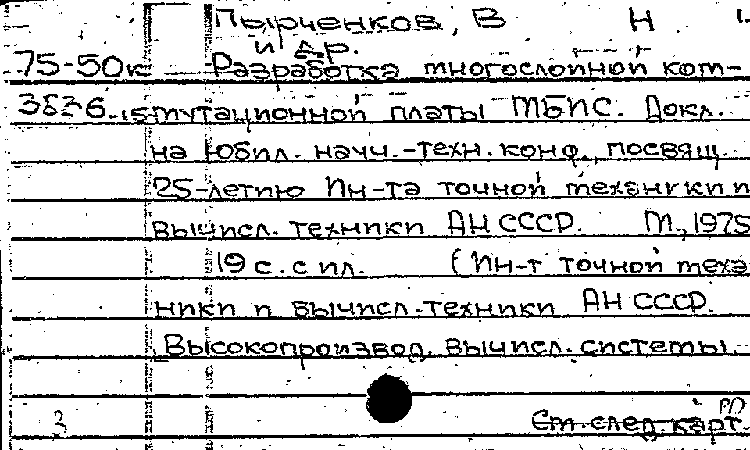 Пырченков, В Н
и др.
75-50к Разработка многослойной ком-
3836 мутационной платы МБИС. Докл.
на юбил. научн.-техн. конф., посвящ.
25-летию Ин-та точной механики и
вычисл. техники АН СССР. М., 1975
19 с. с ил. (Ин-т точной меха
ники и вычисл. техники АН СССР.
Высокопроизвод. вычисл. системы.
3 См. след. карт.